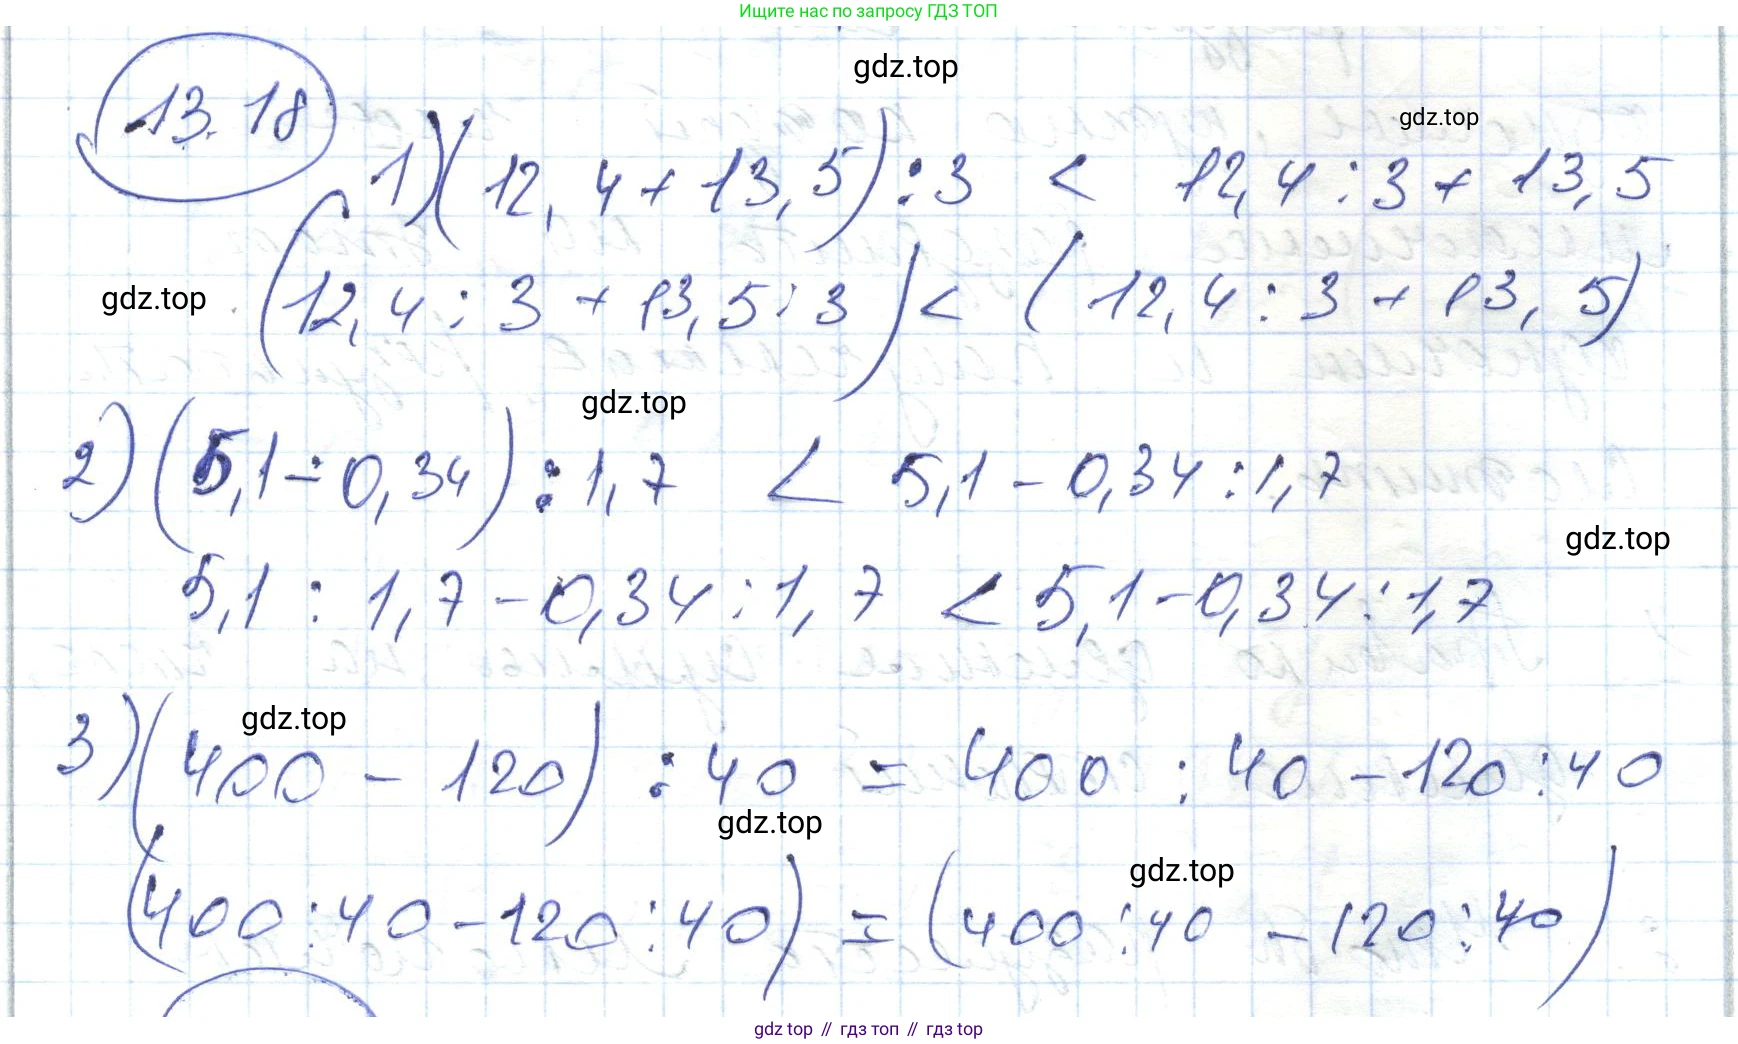 Ищите нас по запросу ГДЗ ТОП
gdz.top
13.18
gdz.top
1) (12,4 + 13,5) : 3 < 12,4 : 3 + 13,5
gdz.top
(12,4 : 3 + 13,5 : 3) < (12,4 : 3 + 13,5)
gdz.top
2) (5,1 - 0,34) : 1,7 < 5,1 - 0,34 : 1,7
gdz.top
5,1 : 1,7 - 0,34 : 1,7 < 5,1 - 0,34 : 1,7
gdz.top
3) (400 - 120) : 40 = 400 : 40 - 120 : 40
gdz.top
gdz.top
(400 : 40 - 120 : 40) = (400 : 40 - 120 : 40)
gdz top // гдз топ // гдз top